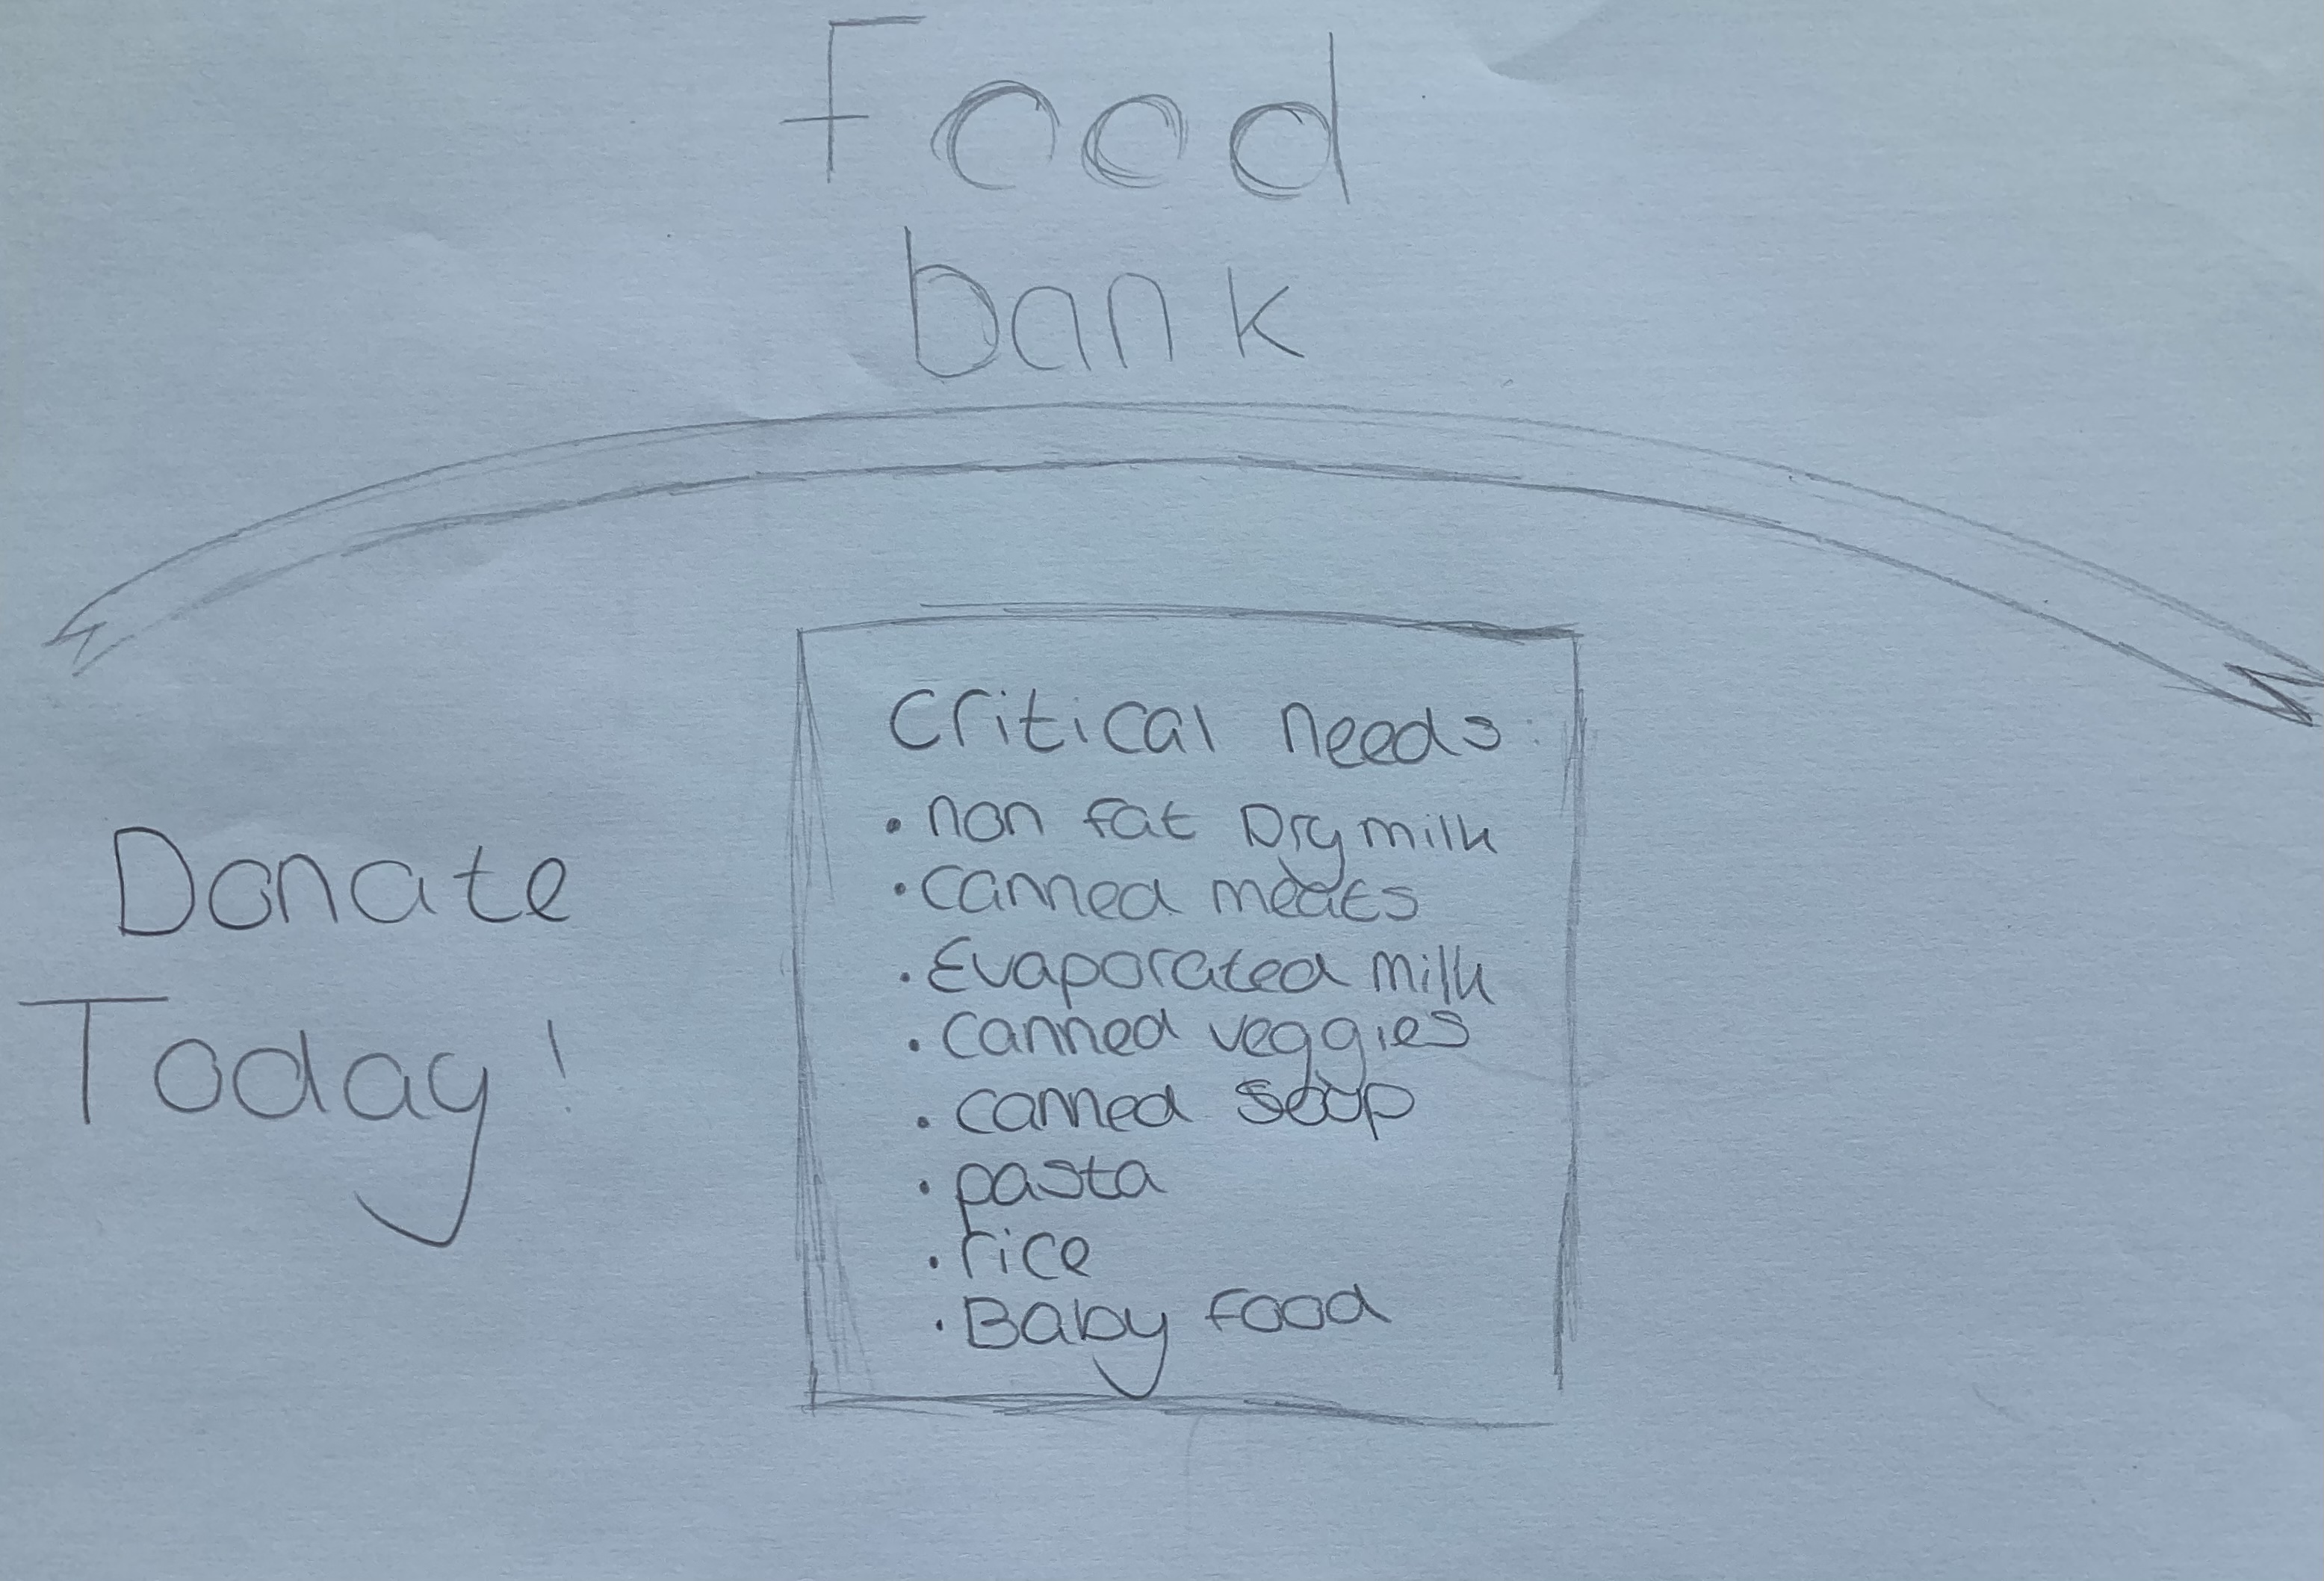 Food
bank
Critical needs:
• non fat Dry milk
• canned meats
• Evaporated milk
• canned veggies
• canned soup
• pasta
• rice
• Baby food
Donate
Today!